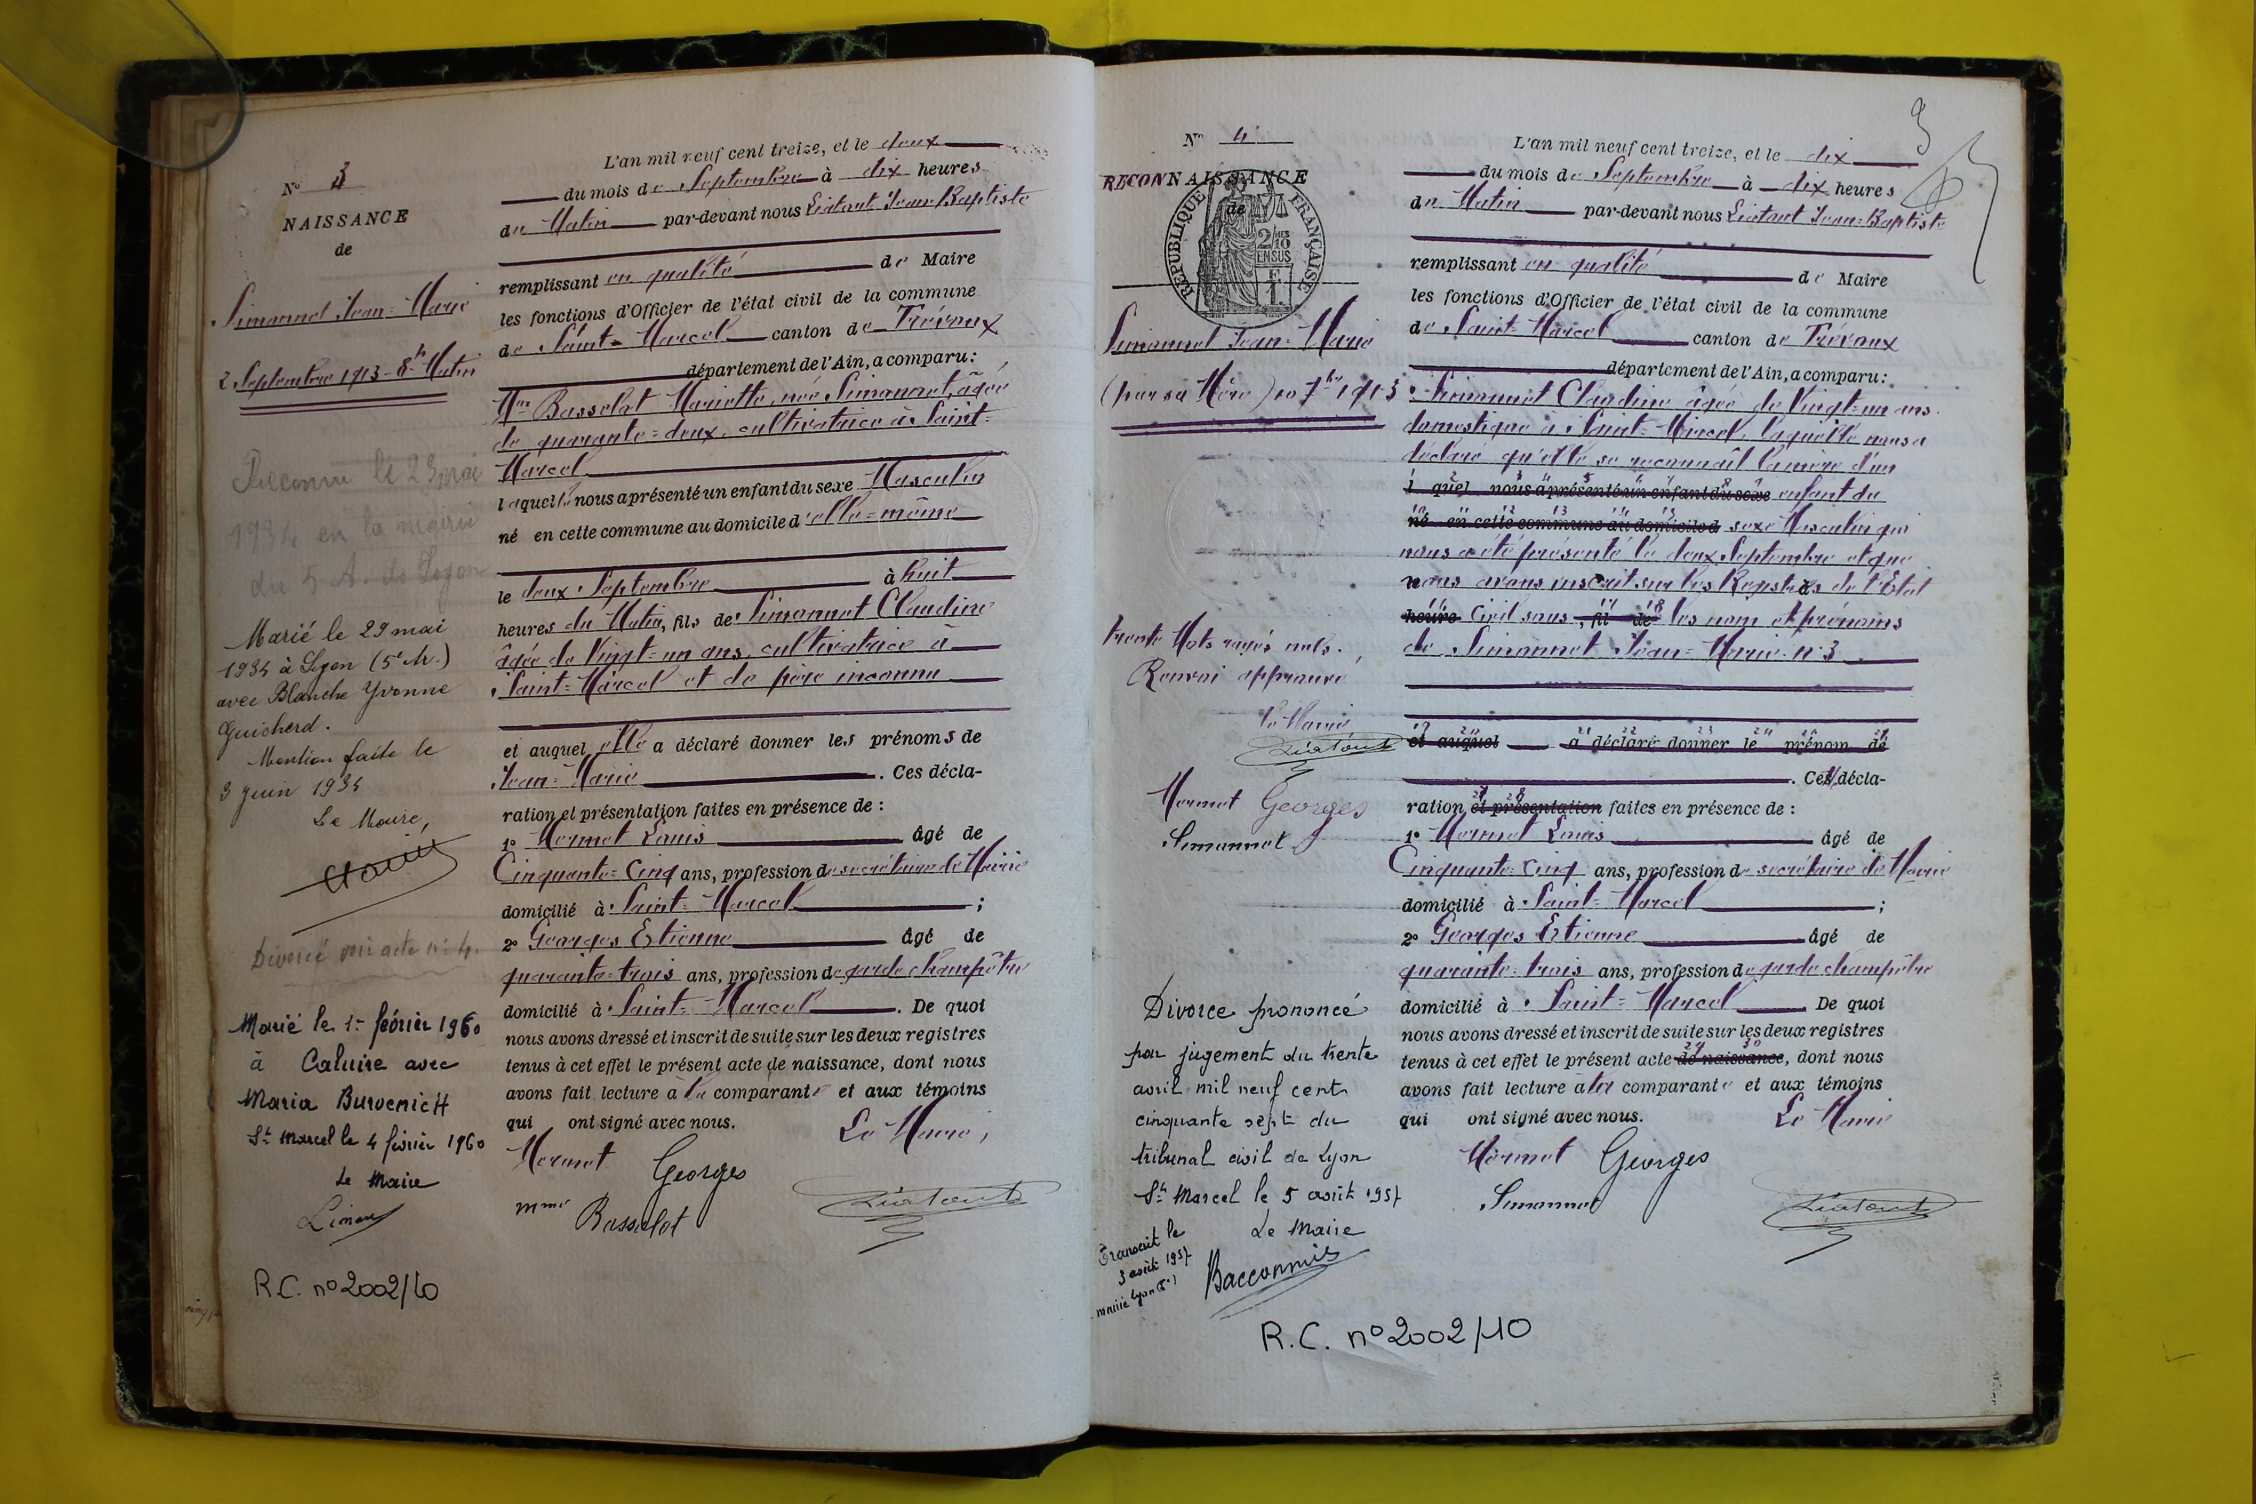 L'an mil neuf cent treize, et le deux
du mois de Septembre à dix heures
du Matin par-devant nous Liatout Jean-Baptiste
remplissant en qualité de Maire
les fonctions d'Officier de l'état civil de la commune
de Saint-Marcel canton de Trévoux
département de l'Ain, a comparu:
Mme Basselat Mariette, née Simonnet, âgée
de quarante=deux, cultivatrice à Saint=
Marcel
laquelle nous a présenté un enfant du sexe Masculin
né en cette commune au domicile d'elle=même
le deux Septembre à huit
heures du Matin, fils de Simonnet Claudine
âgée de Vingt=un ans, cultivatrice à
Saint=Marcel et de père inconnu
et auquel elle a déclaré donner les prénoms de
Jean=Marie. Ces décla-
ration et présentation faites en présence de :
1º Mermet Louis âgé de
Cinquante=Cinq ans, profession de secrétaire de Mairie
domicilié à Saint=Marcel ;
2º Georges Etienne âgé de
quarante=trois ans, profession de garde champêtre
domicilié à Saint=Marcel. De quoi
nous avons dressé et inscrit de suite sur les deux registres
tenus à cet effet le présent acte de naissance, dont nous
avons fait lecture à la comparante et aux témoins
qui ont signé avec nous.
Le Maire,
Mermet Georges
Mme Basselat Liatout
Nº 3
NAISSANCE
de
Simonnet Jean=Marie
2 Septembre 1913 - 8h Matin
Reconnu le 29 mai
1934 en la mairie
du 5 A. de Lyon
Marié le 29 mai
1934 à Lyon (5e Ar.)
avec Blanche Yvonne
Guicherd.
Mention faite le
3 juin 1934
Le Maire,
Divorcé voir acte nº 4.
Marié le 1er février 1960
à Caluire avec
Maria BurvenicH
St Marcel le 4 février 1960
Le Maire
R.C. nº 2002/10
3
Nº 4
RECONNAISSANCE
de
REPUBLIQUE FRANÇAISE
2/10 EN SUS
1 F.
Simonnet Jean=Marie
(par sa Mère) 10 7bre 1913
trente Mots rayés nuls.
Renvoi approuvé
Le Maire
Liatout
Mermet Georges
Simonnet
Divorce prononcé
par jugement du trente
avril mil neuf cent
cinquante sept du
tribunal civil de Lyon
St Marcel le 5 août 1957
Le Maire
Bacconnis
Transcrit le
3 août 1957
mairie Lyon
R.C. nº 2002/10
L'an mil neuf cent treize, et le dix
du mois de Septembre à dix heures
du Matin par-devant nous Liatout Jean=Baptiste
remplissant en qualité de Maire
les fonctions d'Officier de l'état civil de la commune
de Saint=Marcel canton de Trévoux
département de l'Ain, a comparu:
Simonnet Claudine âgée de Vingt=un ans.
domestique à Saint=Marcel, laquelle nous a
déclaré qu'elle se reconnaît la mère d'un
l quel nous a présenté un enfant du sexe enfant du
né en cette commune au domicile d sexe Masculin qui
nous a été présenté le deux Septembre et que
nous avons inscrit sur les Registres de l'Etat
heure Civil sous, fil de les nom et prénoms
de Simonnet Jean=Marie nº 3
et auquel a déclaré donner le prénom de
. Ces décla-
ration et présentation faites en présence de :
1º Mermet Louis âgé de
Cinquante=Cinq ans, profession de secrétaire de Mairie
domicilié à Saint=Marcel ;
2º Georges Etienne âgé de
quarante=trois ans, profession de garde champêtre
domicilié à Saint=Marcel. De quoi
nous avons dressé et inscrit de suite sur les deux registres
tenus à cet effet le présent acte de naissance, dont nous
avons fait lecture à la comparante et aux témoins
qui ont signé avec nous.
Le Maire
Mermet Georges
Simonnet Liatout